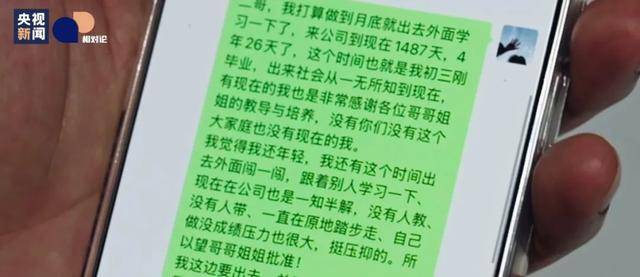 央视新闻
相对论
二哥，我打算做到月底就出去外面学
习一下了，来公司到现在1487天，4
年26天了，这个时间也就是我初三刚
毕业，出来社会从一无所知到现在，
有现在的我也是非常感谢各位哥哥姐
姐的教导与培养，没有你们没有这个
大家庭也没有现在的我。
我觉得我还年轻，我还有这个时间出
去外面闯一闯，跟着别人学习一下、
现在在公司也是一知半解，没有人教、
没有人带、一直在原地踏步走、自己
做没成绩压力也很大，挺压抑的。所
以望哥哥姐姐批准！
我这边要出去